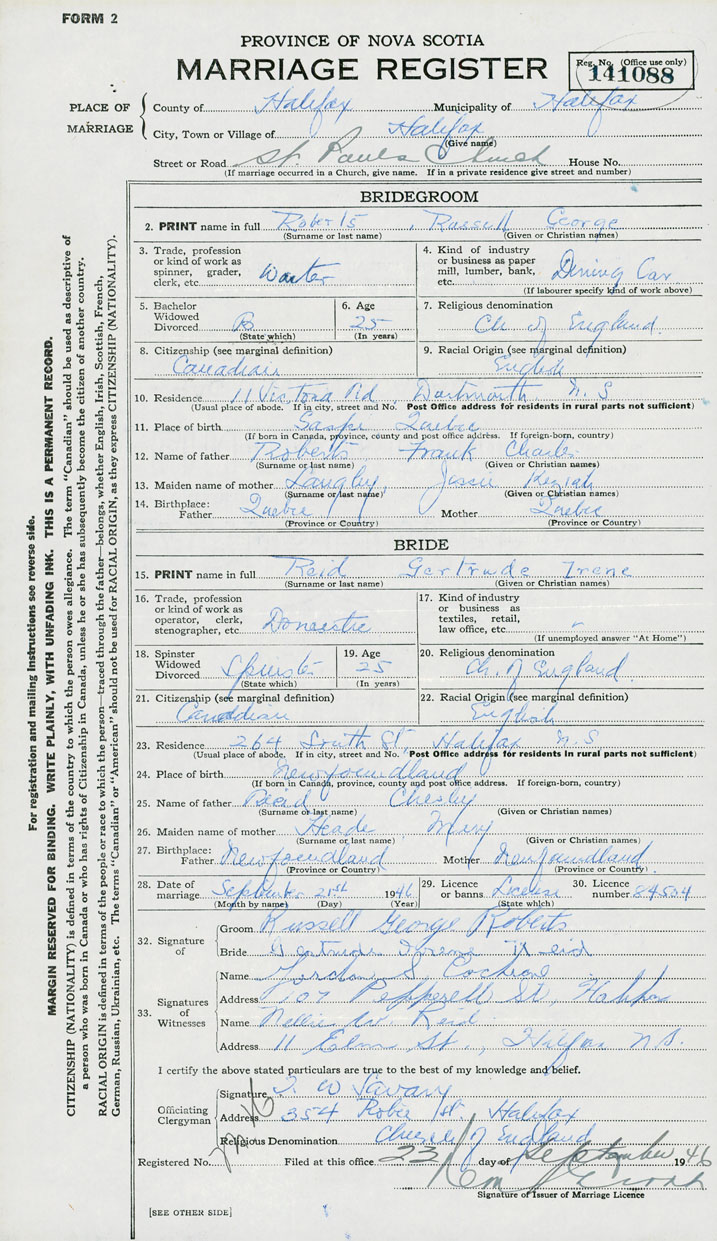 FORM 2
PROVINCE OF NOVA SCOTIA
MARRIAGE REGISTER
Reg. No. (Office use only)
141088
PLACE OF MARRIAGE
County of Halifax Municipality of Halifax
City, Town or Village of Halifax
(Give name)
Street or Road St. Pauls Church House No.
(If marriage occurred in a Church, give name. If in a private residence give street and number)
BRIDEGROOM
2. PRINT name in full Roberts, Russell George
(Surname or last name) (Given or Christian names)
3. Trade, profession or kind of work as spinner, grader, clerk, etc. Waiter
4. Kind of industry or business as paper mill, lumber, bank, etc. Dining Car
(If labourer specify kind of work above)
5. Bachelor Widowed Divorced B
(State which)
6. Age 25
(In years)
7. Religious denomination
Ch. of England
8. Citizenship (see marginal definition)
Canadian
9. Racial Origin (see marginal definition)
English
10. Residence 11 Victoria Rd, Dartmouth N.S
(Usual place of abode. If in city, street and No. Post Office address for residents in rural parts not sufficient)
11. Place of birth Quebec
(If born in Canada, province, county and post office address. If foreign-born, country)
12. Name of father Roberts Frank Charles
(Surname or last name) (Given or Christian names)
13. Maiden name of mother Langley Jessie Keziah
(Surname or last name) (Given or Christian names)
14. Birthplace: Father Quebec Mother Quebec
(Province or Country) (Province or Country)
BRIDE
15. PRINT name in full Reid Gertrude Irene
(Surname or last name) (Given or Christian names)
16. Trade, profession or kind of work as operator, clerk, stenographer, etc. Domestic
17. Kind of industry or business as textiles, retail, law office, etc. "
(If unemployed answer "At Home")
18. Spinster Widowed Divorced Spinster
(State which)
19. Age 25
(In years)
20. Religious denomination
Ch. of England
21. Citizenship (see marginal definition)
Canadian
22. Racial Origin (see marginal definition)
English
23. Residence 264 South St, Halifax N.S
(Usual place of abode. If in city, street and No. Post Office address for residents in rural parts not sufficient)
24. Place of birth Newfoundland
(If born in Canada, province, county and post office address. If foreign-born, country)
25. Name of father Reid Chesley
(Surname or last name) (Given or Christian names)
26. Maiden name of mother Heade Mary
(Surname or last name) (Given or Christian names)
27. Birthplace: Father Newfoundland Mother Newfoundland
(Province or Country) (Province or Country)
28. Date of marriage September 21st 1946
(Month by name) (Day) (Year)
29. Licence or banns License
(State which)
30. Licence number 84504
32. Signature of
Groom Russell George Roberts
Bride Gertrude Irene Reid
33. Signatures of Witnesses
Name Gordon S. Cochrane
Address 107 Pepperell St, Halifax
Name Nellie W Reid
Address 11 Elm St., Halifax N.S.
I certify the above stated particulars are true to the best of my knowledge and belief.
Officiating Clergyman
Signature T. W Savary
Address 354 Robie St Halifax
Religious Denomination Church of England
Registered No. Filed at this office 23 day of September 1946
Signature of Issuer of Marriage Licence
[SEE OTHER SIDE]
For registration and mailing instructions see reverse side.
MARGIN RESERVED FOR BINDING. WRITE PLAINLY, WITH UNFADING INK. THIS IS A PERMANENT RECORD.
CITIZENSHIP (NATIONALITY) is defined in terms of the country to which the person owes allegiance. The term "Canadian" should be used as descriptive of
a person who was born in Canada or who has rights of Citizenship in Canada, unless he or she has subsequently become the citizen of another country.
RACIAL ORIGIN is defined in terms of the people or race to which the person—traced through the father—belongs, whether English, Irish, Scottish, French,
German, Russian, Ukrainian, etc. The terms "Canadian" or "American" should not be used for RACIAL ORIGIN, as they express CITIZENSHIP (NATIONALITY).